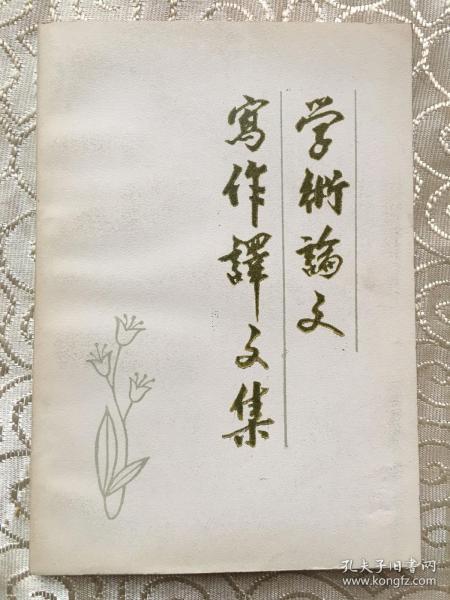 学術論文
寫作譯文集
孔夫子旧书网
www.kongfz.com